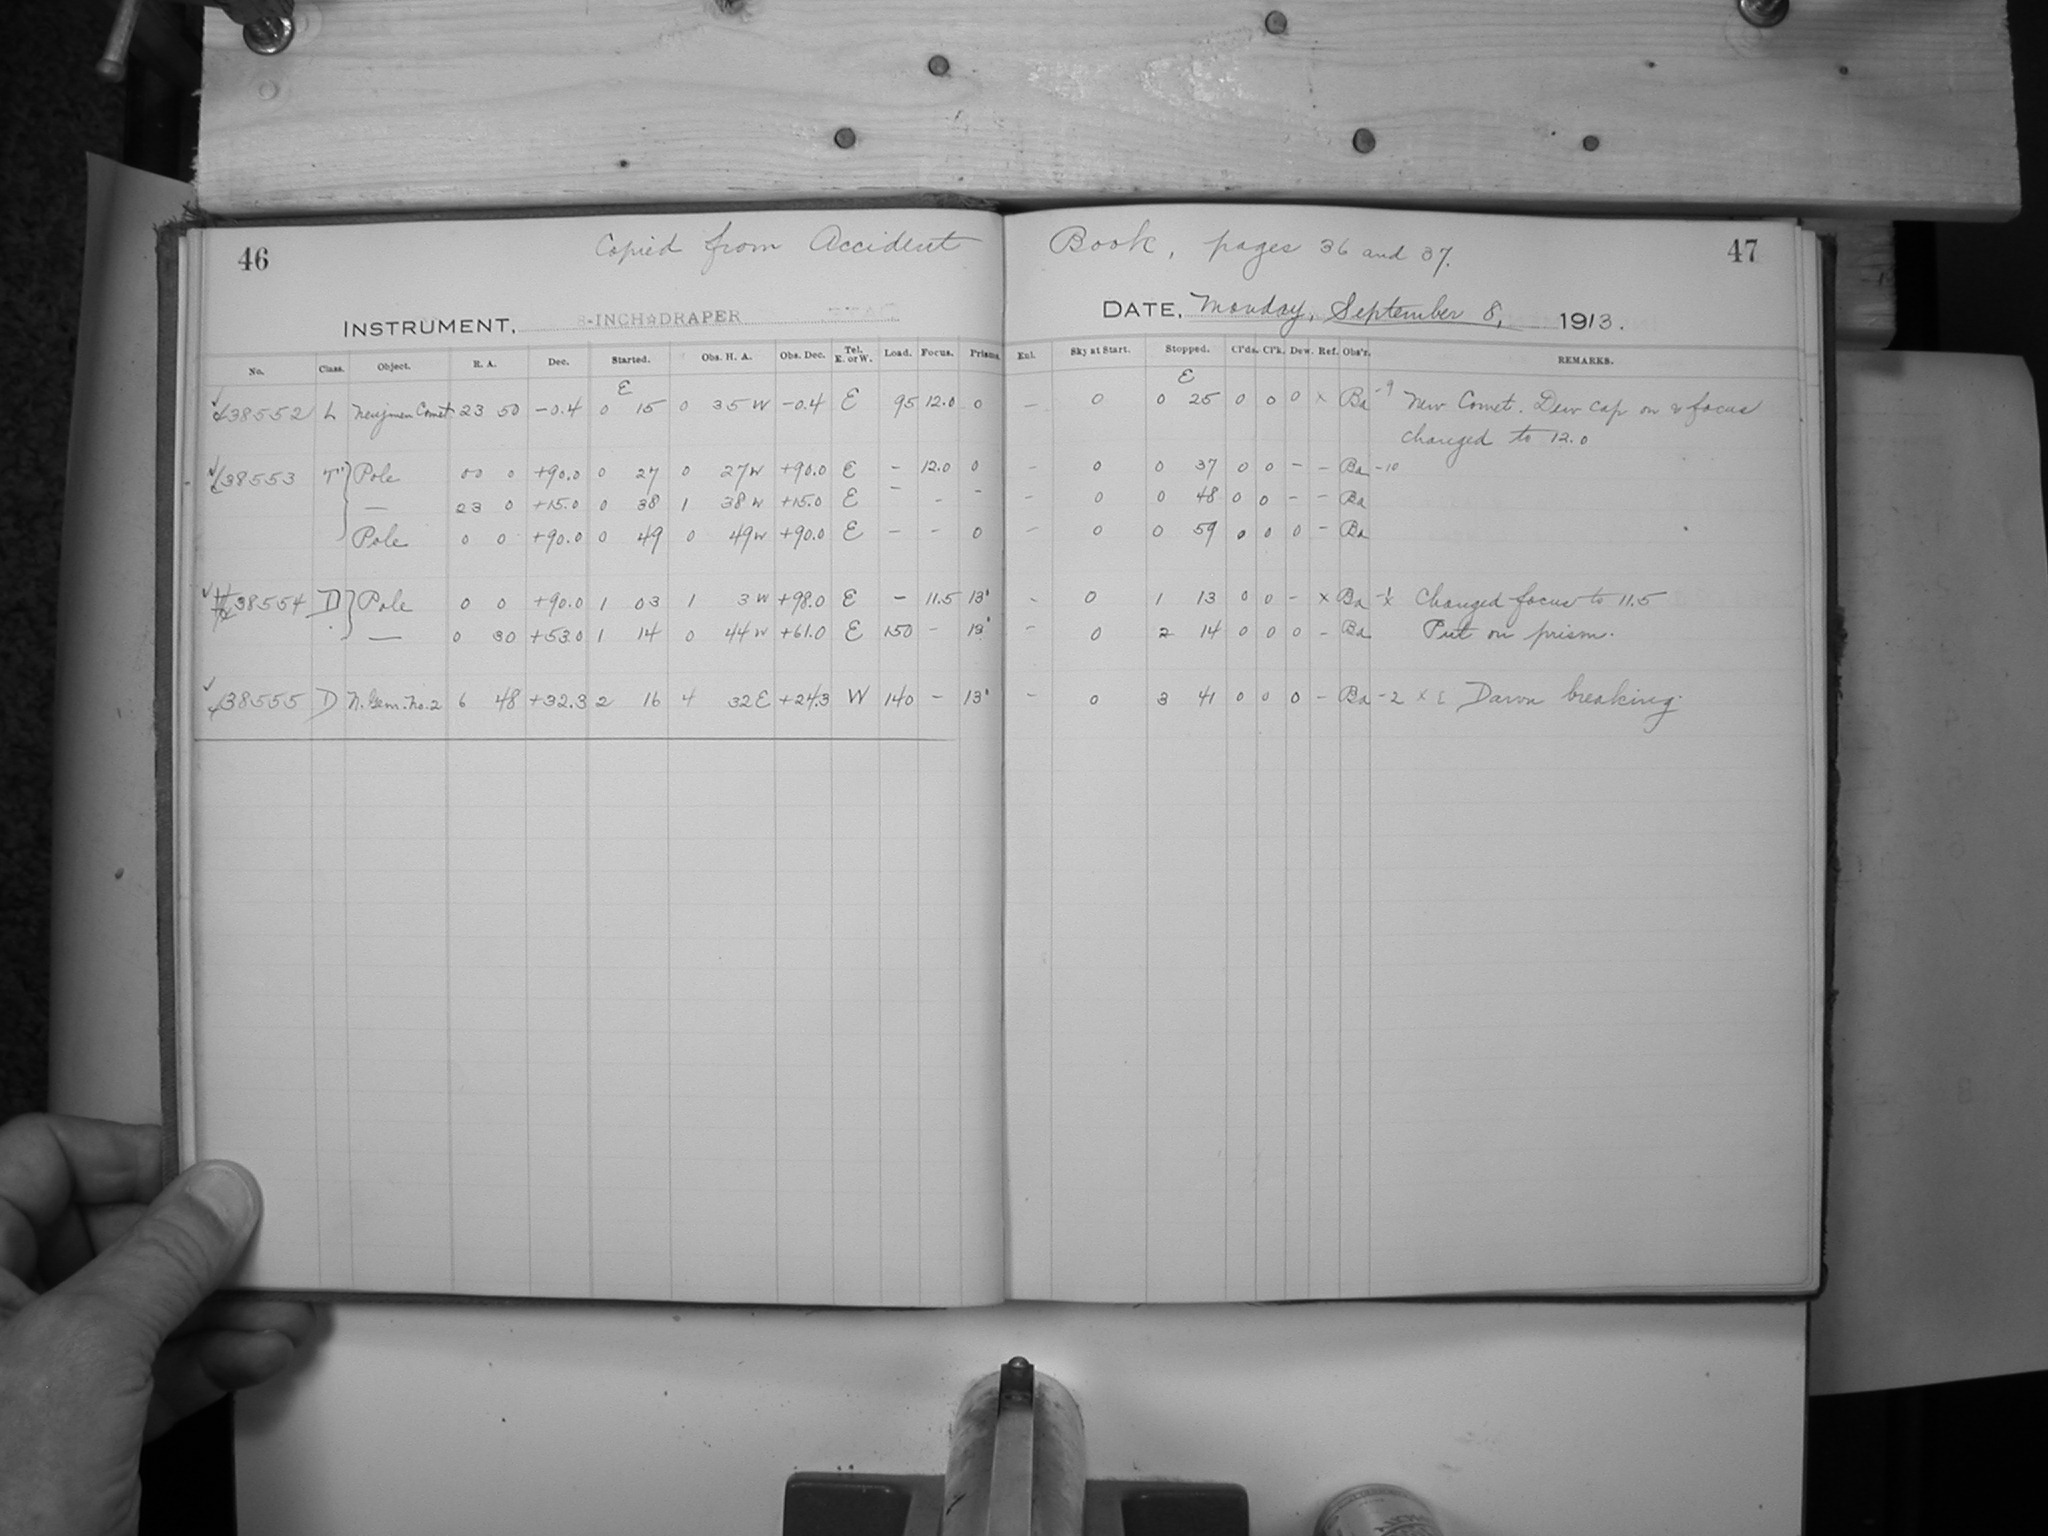 46 Copied from Accident Book, pages 36 and 37. 47
INSTRUMENT, 8-INCH DRAPER DATE, Monday, September 8, 1913.
No. Class. Object. R. A. Dec. Started. Obs. H. A. Obs. Dec. Tel. E. or W. Load. Focus. Prisms. Exl. Sky at Start. Stopped. Cl'ds. Cl'k. Dew. Ref. Obs'r. REMARKS.
E E
38552 L Neujmen Comet 23 50 -0.4 0 15 0 35 W -0.4 E 95 12.0 0 - 0 0 25 0 0 0 x Ba -9 New Comet. Dew cap on & focus
changed to 12.0
38553 T Pole 00 0 +90.0 0 27 0 27 W +90.0 E - 12.0 0 - 0 0 37 0 0 - - Ba -10
— 23 0 +15.0 0 38 1 38 W +15.0 E - - - - 0 0 48 0 0 - - Ba
Pole 0 0 +90.0 0 49 0 49 W +90.0 E - - 0 - 0 0 59 0 0 0 - Ba
38554 D Pole 0 0 +90.0 1 03 1 3 W +98.0 E - 11.5 13' - 0 1 13 0 0 - x Ba Changed focus to 11.5
— 0 30 +53.0 1 14 0 44 W +61.0 E 150 - 13' - 0 2 14 0 0 0 - Ba Put on prism.
38555 D N. Gem. No. 2 6 48 +32.3 2 16 4 32 E +24.3 W 140 - 13' - 0 3 41 0 0 0 - Ba -2 x Dawn breaking.